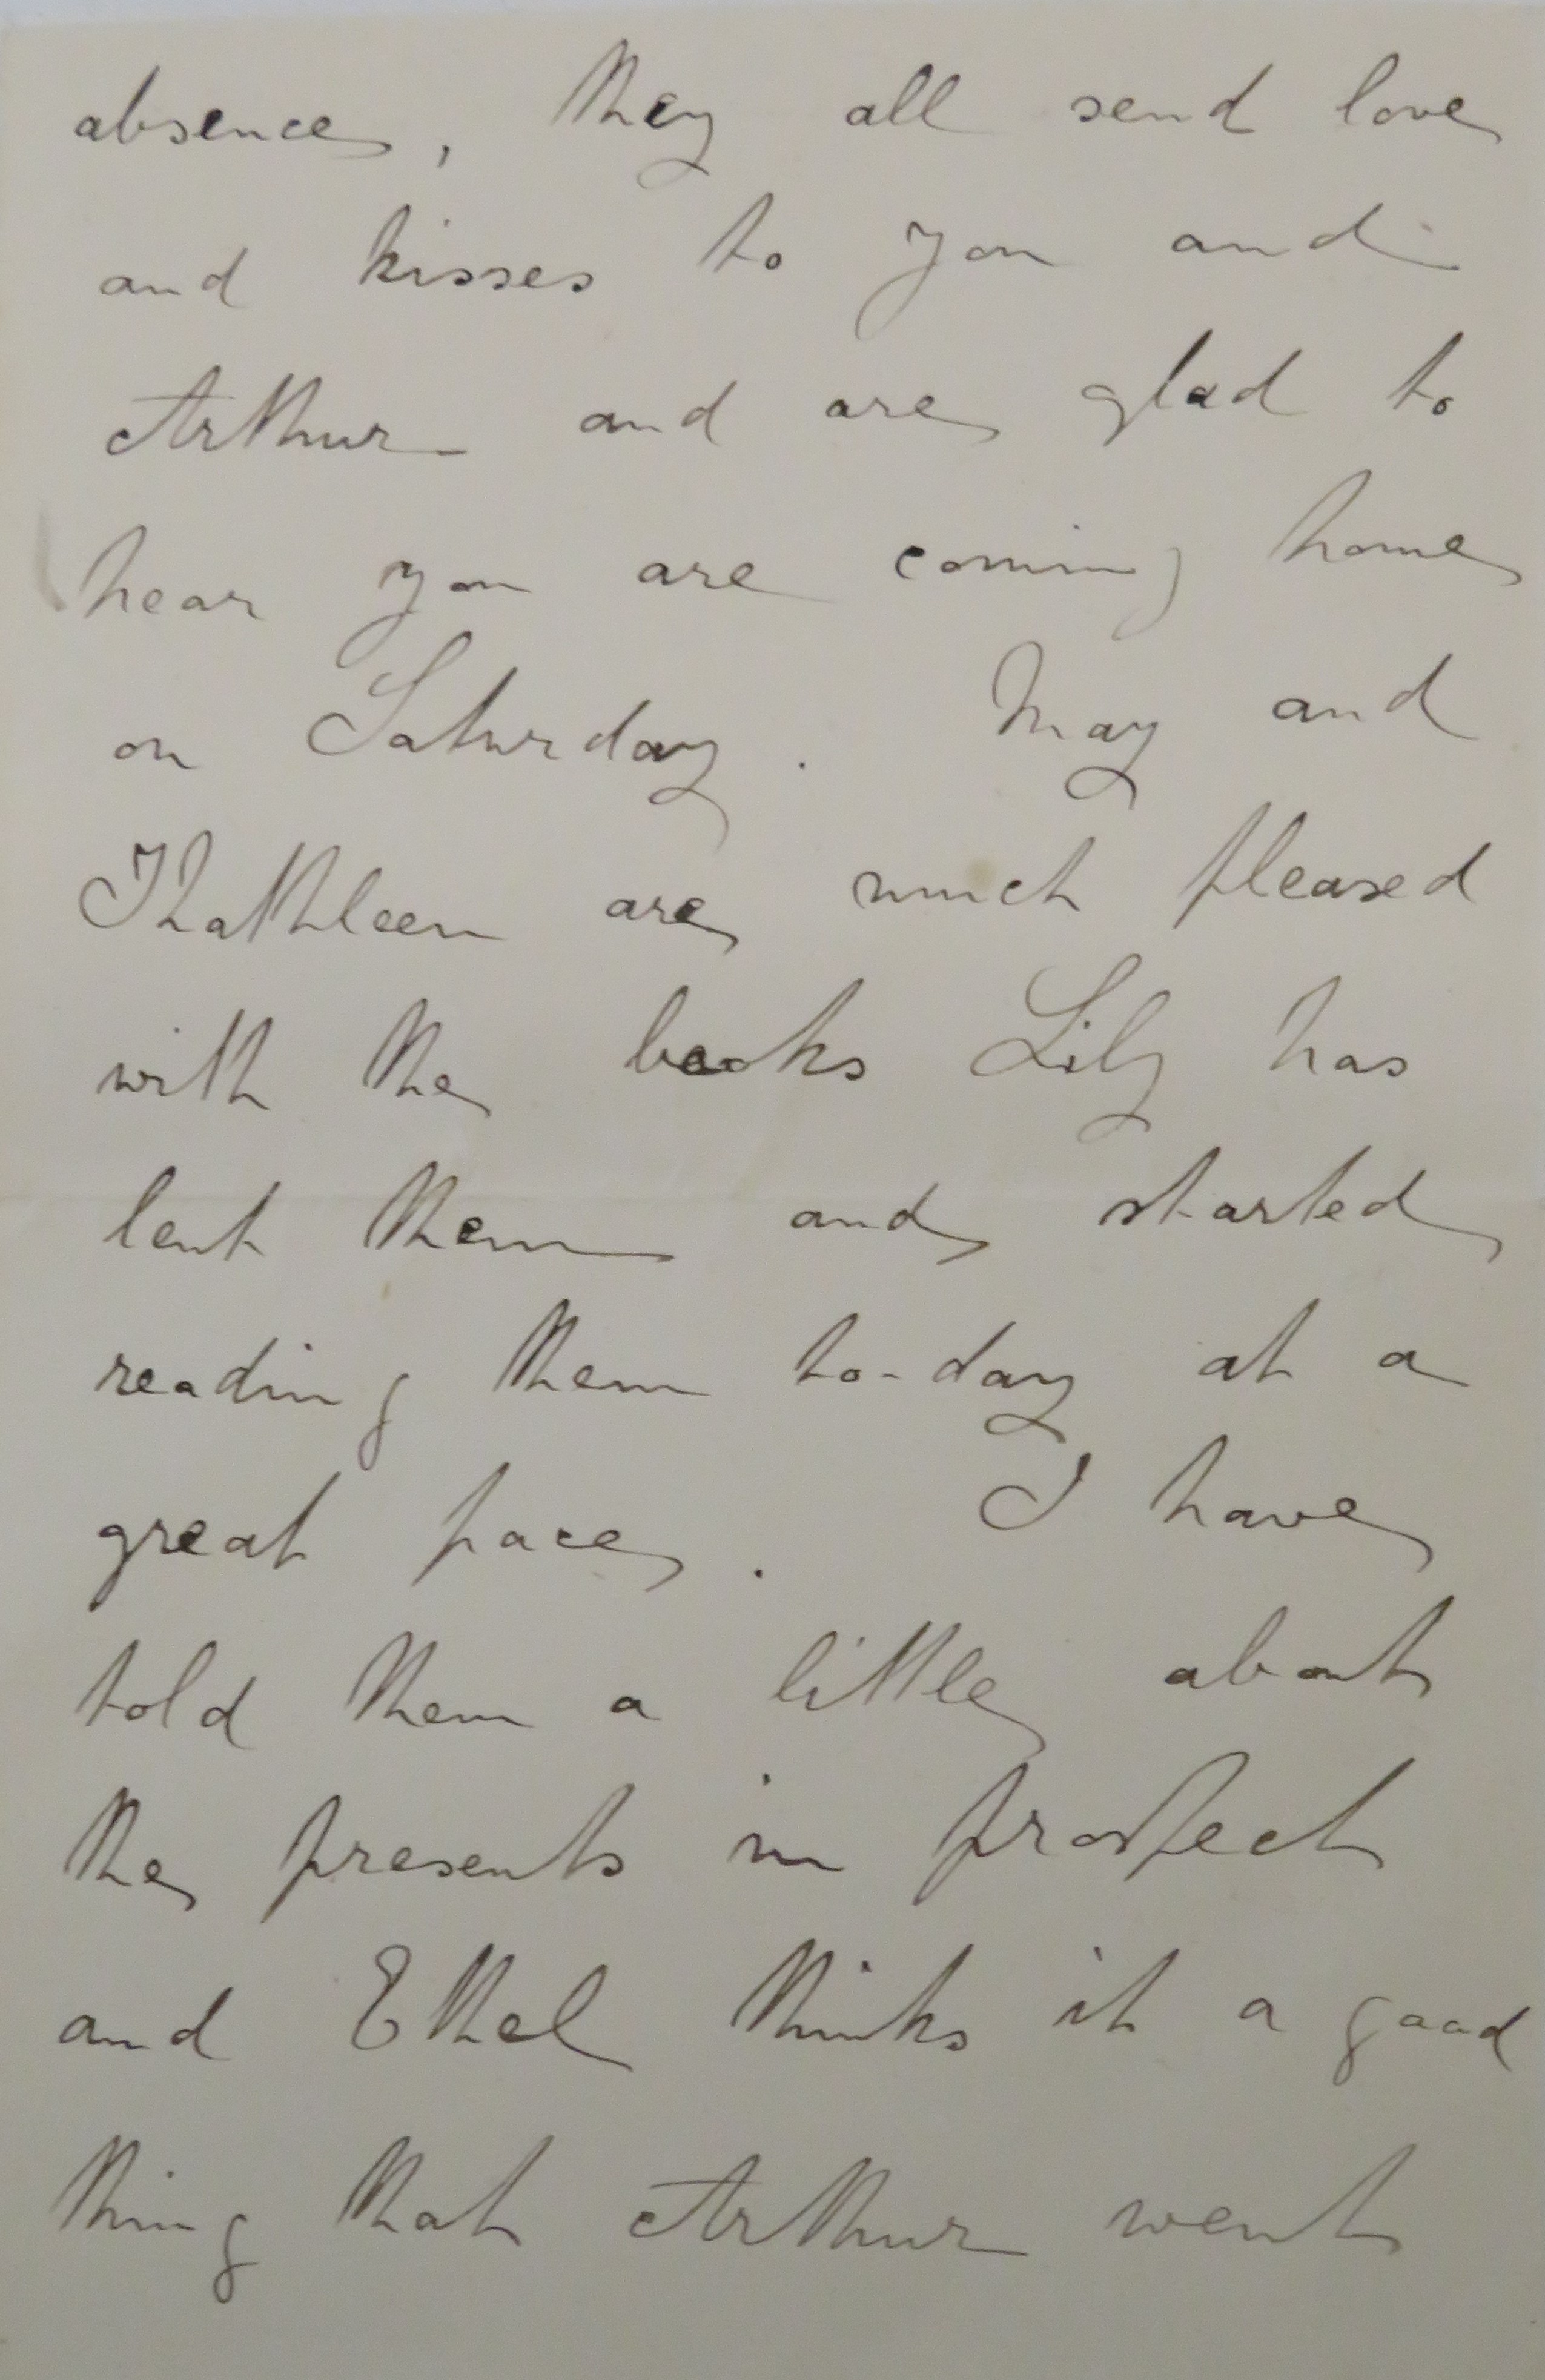 absence, they all send love
and kisses to you and
Arthur and are glad to
hear you are coming home
on Saturday. May and
Kathleen are much pleased
with the books Lily has
lent them and started
reading them to-day at a
great pace. I have
told them a little about
the presents in prospect
and Ethel thinks it a good
thing that Arthur went